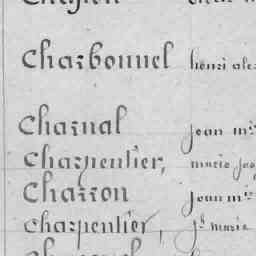 Charbonnel henri
Charnal jean m.
Charpentier, marie
Charron jean m.
Charpentier, jh marie